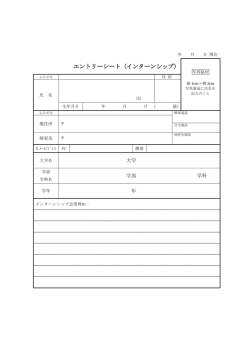 年　月　日 現在
エントリーシート（インターンシップ）
写真貼付
縦 4cm×横 3cm
写真裏面に氏名を
記入のこと
ふりがな　性 別
氏　名
印
生年月日　年　月　日（　歳）
ふりがな　携帯電話
現住所　〒
自宅電話
連絡先　〒
Eメールアドレス　PC　携帯
大学名　大学
学部
学科名　学部　学科
学年　年
インターンシップ志望理由：